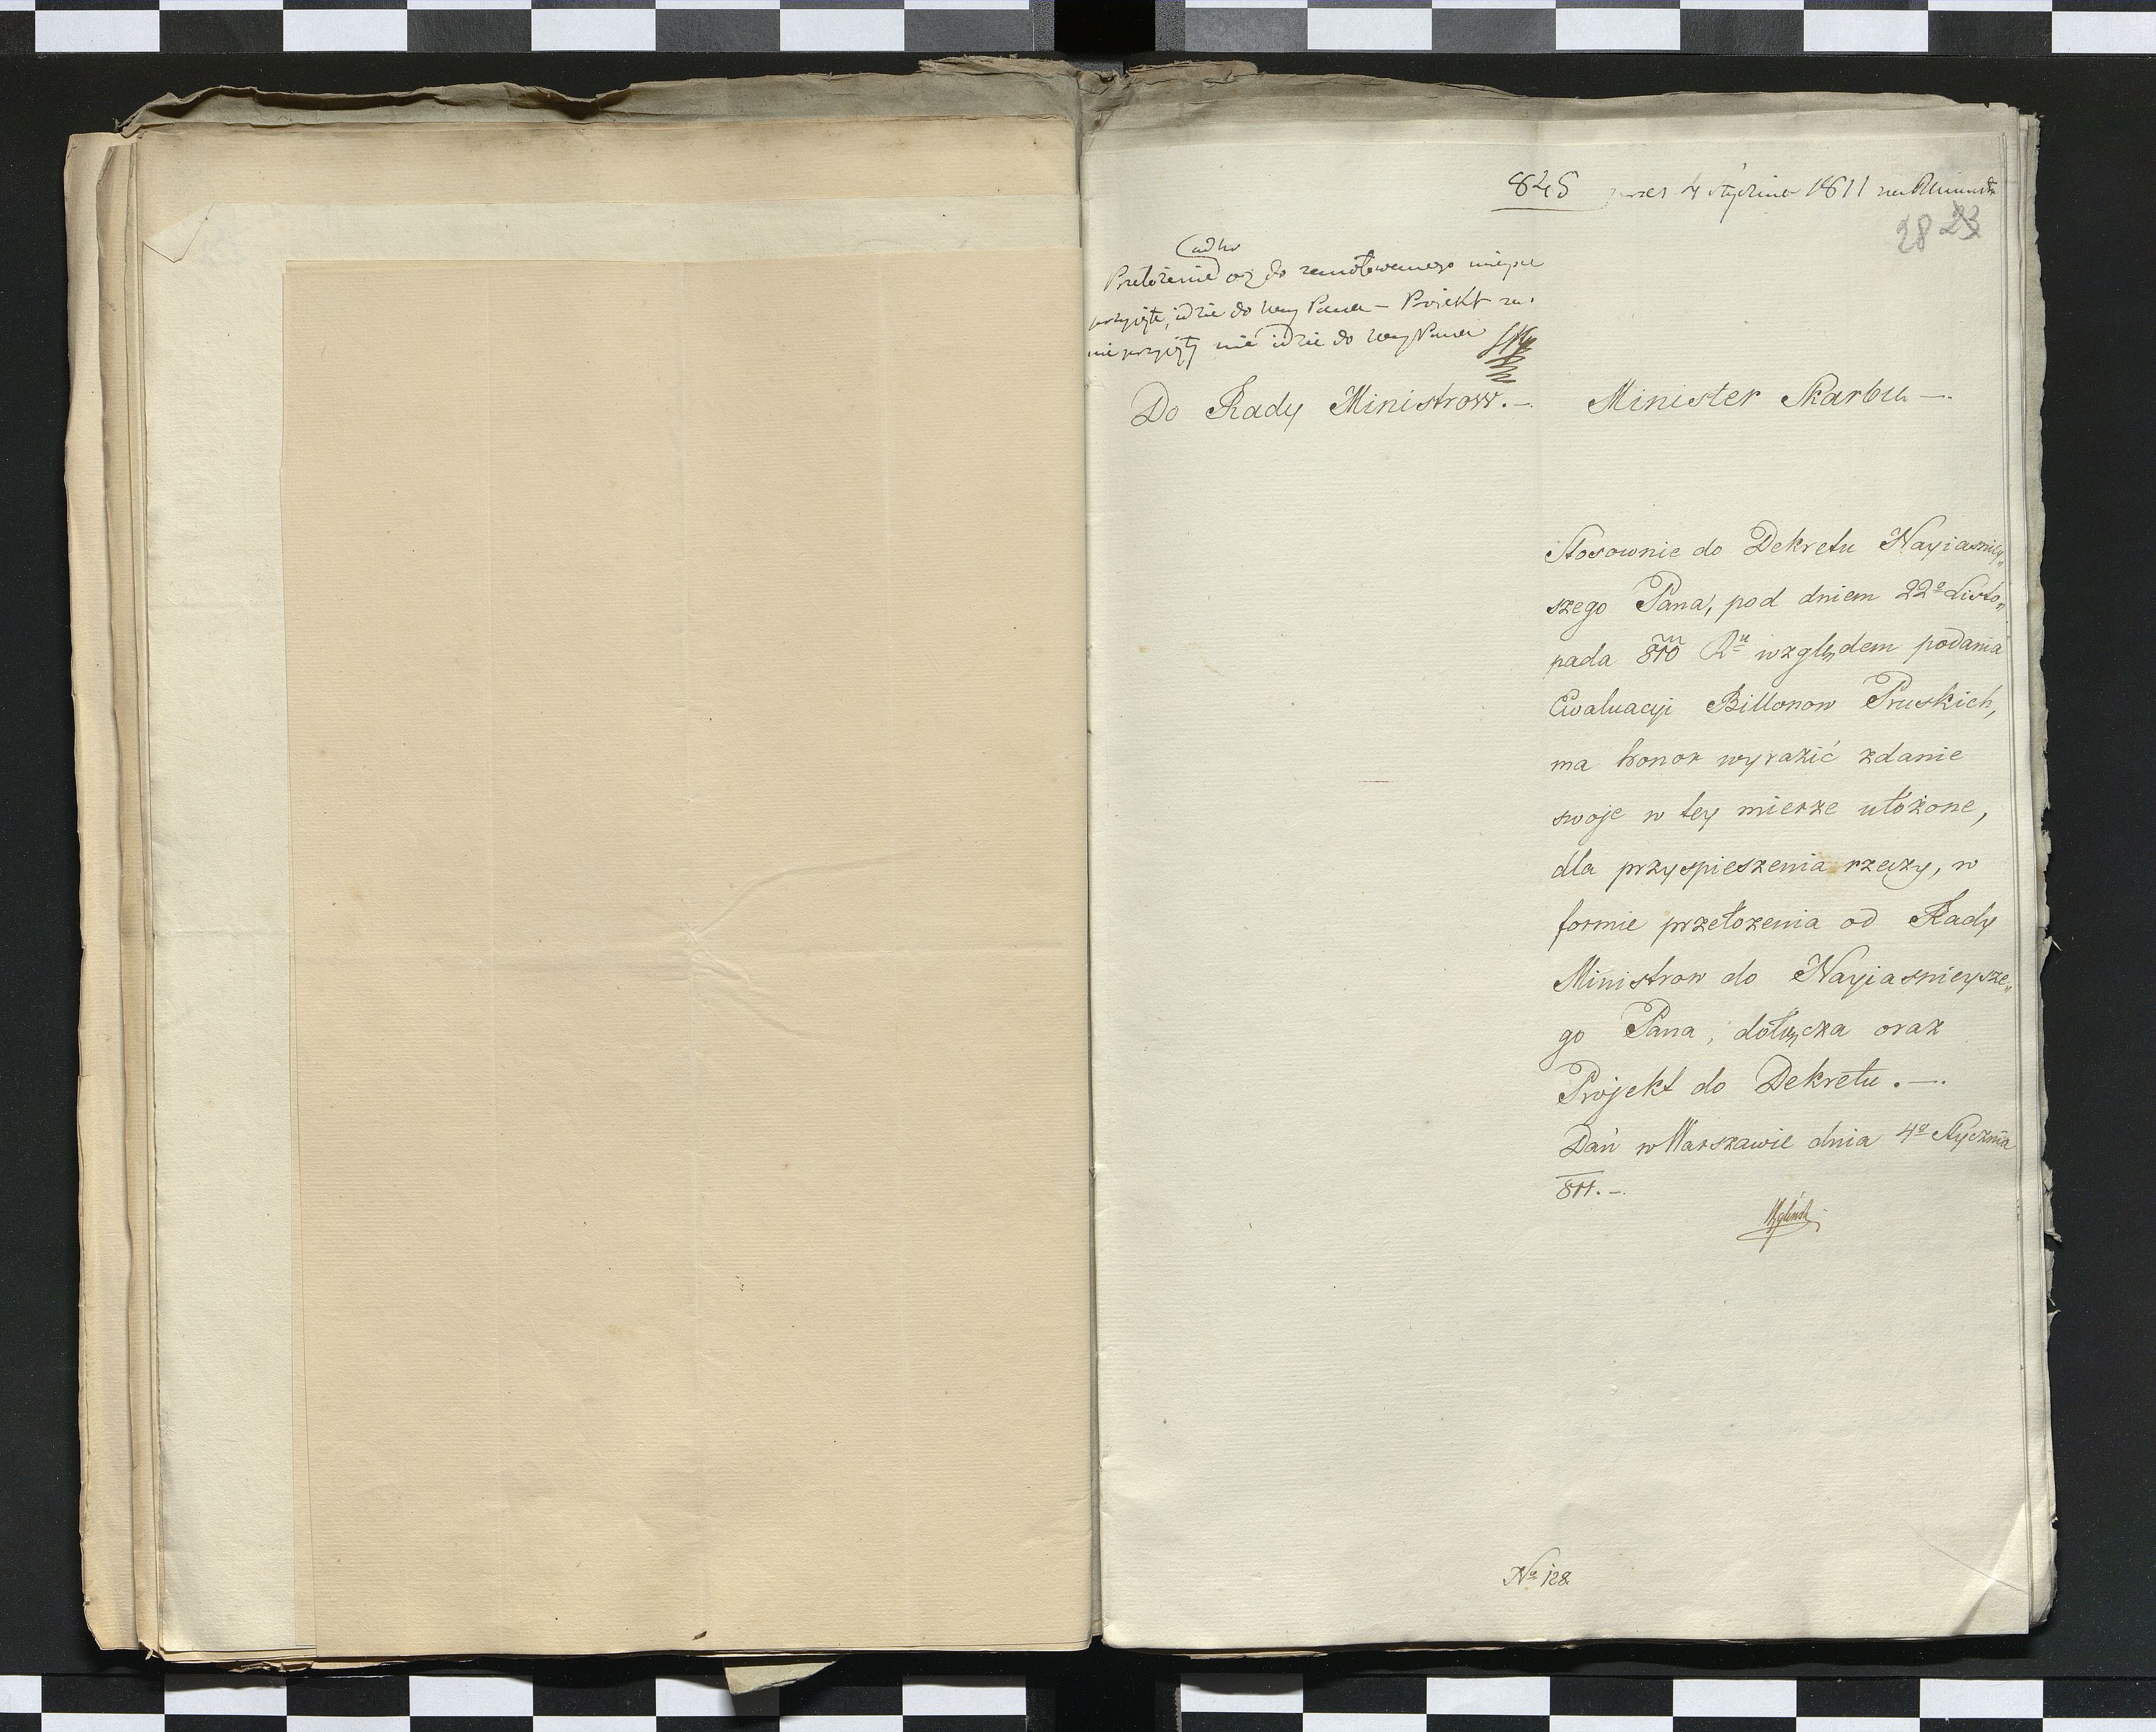 845 4 Stycznia 1811
28 23
Przełożenie do zanotowanego
przyięte, idzie do Nay Pana — Proiekt
nie przyięty nie idzie do Nay Pana
Do Rady Ministrow.—
Minister Skarbu —.
Stosownie do Dekretu Nayiasniey„
szego Pana, pod dniem 22º Listo„
pada 810 Rᵘ względem podania
Ewaluacyi Billonow Pruskich,
ma honor wyrazić zdanie
swoje w tey mierze ułożone,
dla przyspieszenia rzeczy, w
formie przełożenia od Rady
Ministrow do Nayiasnieysze„
go Pana, dołącza oraz
Projekt do Dekretu.—.
Dań w Warszawie dnia 4º Stycznia
811.—.
Nº 128